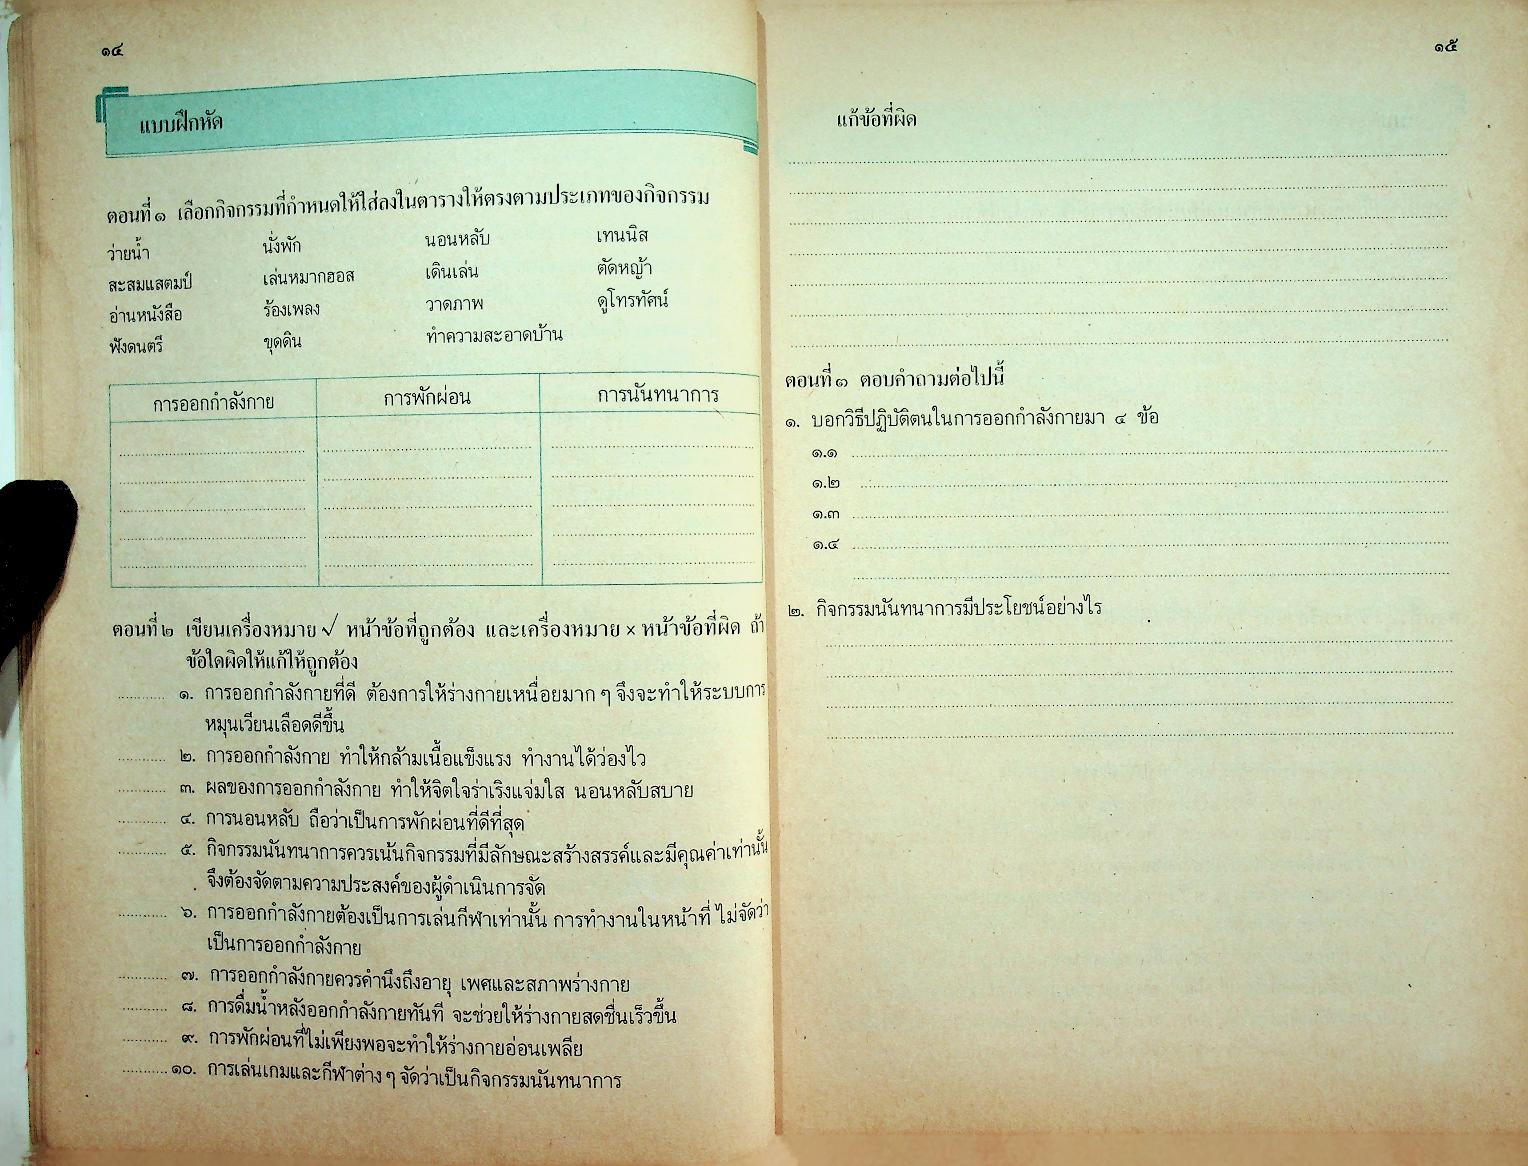 ๑๔
แบบฝึกหัด
ตอนที่ ๑ เลือกกิจกรรมที่กำหนดให้ใส่ลงในตารางให้ตรงตามประเภทของกิจกรรม
ว่ายน้ำ นั่งพัก นอนหลับ เทนนิส
สะสมแสตมป์ เล่นหมากฮอส เดินเล่น ตัดหญ้า
อ่านหนังสือ ร้องเพลง วาดภาพ ดูโทรทัศน์
ฟังดนตรี ขุดดิน ทำความสะอาดบ้าน
การออกกำลังกาย การพักผ่อน การนันทนาการ
ตอนที่ ๒ เขียนเครื่องหมาย √ หน้าข้อที่ถูกต้อง และเครื่องหมาย × หน้าข้อที่ผิด ถ้า
ข้อใดผิดให้แก้ให้ถูกต้อง
............ ๑. การออกกำลังกายที่ดี ต้องการให้ร่างกายเหนื่อยมาก ๆ จึงจะทำให้ระบบการ
หมุนเวียนเลือดดีขึ้น
............ ๒. การออกกำลังกาย ทำให้กล้ามเนื้อแข็งแรง ทำงานได้ว่องไว
............ ๓. ผลของการออกกำลังกาย ทำให้จิตใจร่าเริงแจ่มใส นอนหลับสบาย
............ ๔. การนอนหลับ ถือว่าเป็นการพักผ่อนที่ดีที่สุด
............ ๕. กิจกรรมนันทนาการควรเน้นกิจกรรมที่มีลักษณะสร้างสรรค์และมีคุณค่าเท่านั้น
จึงต้องจัดตามความประสงค์ของผู้ดำเนินการจัด
............ ๖. การออกกำลังกายต้องเป็นการเล่นกีฬาเท่านั้น การทำงานในหน้าที่ ไม่จัดว่า
เป็นการออกกำลังกาย
............ ๗. การออกกำลังกายควรคำนึงถึงอายุ เพศและสภาพร่างกาย
............ ๘. การดื่มน้ำหลังออกกำลังกายทันที จะช่วยให้ร่างกายสดชื่นเร็วขึ้น
............ ๙. การพักผ่อนที่ไม่เพียงพอจะทำให้ร่างกายอ่อนเพลีย
............ ๑๐. การเล่นเกมและกีฬาต่าง ๆ จัดว่าเป็นกิจกรรมนันทนาการ
๑๕
แก้ข้อที่ผิด
ตอนที่ ๓ ตอบคำถามต่อไปนี้
๑. บอกวิธีปฏิบัติตนในการออกกำลังกายมา ๔ ข้อ
๑.๑
๑.๒
๑.๓
๑.๔
๒. กิจกรรมนันทนาการมีประโยชน์อย่างไร